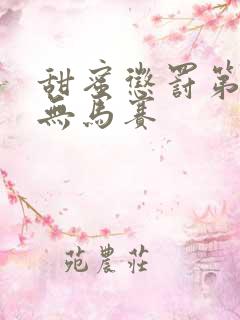 甜蜜懲罰第
無馬賽
苑農莊